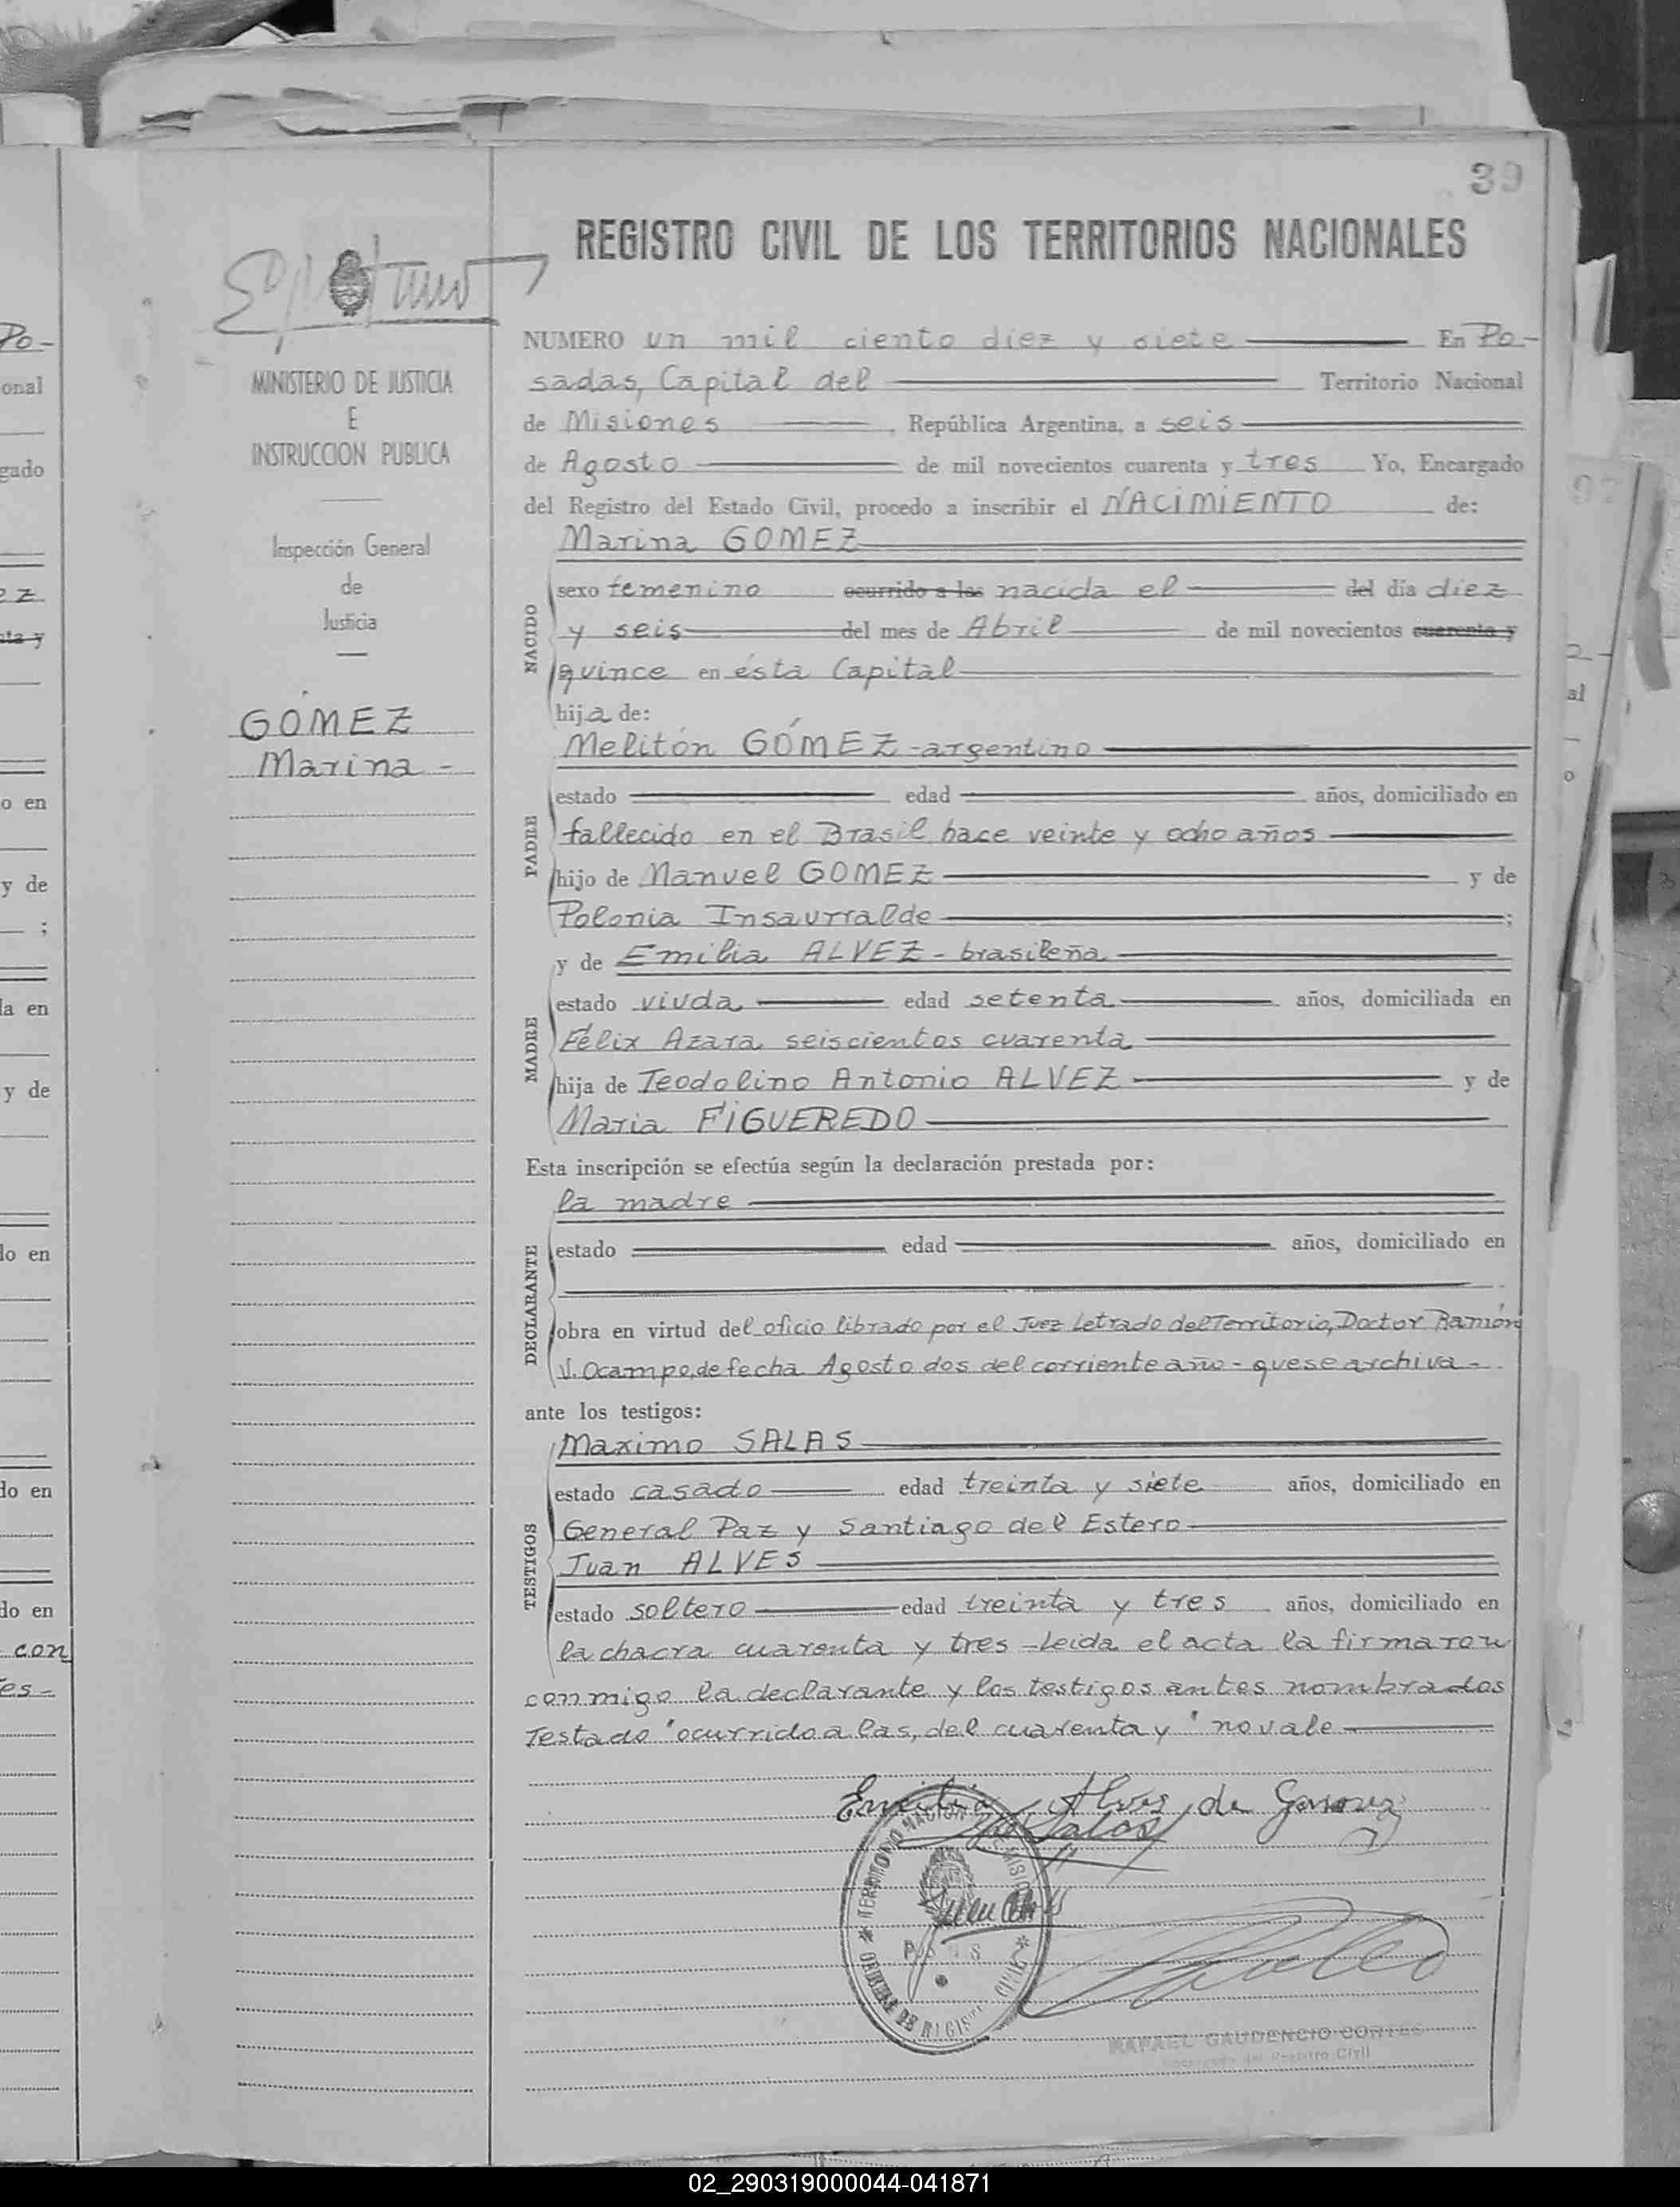 39
REGISTRO CIVIL DE LOS TERRITORIOS NACIONALES
MINISTERIO DE JUSTICIA
E
INSTRUCCION PUBLICA
Inspección General
de
Justicia
GÓMEZ
Marina -
NUMERO un mil ciento diez y siete En Po-
sadas, Capital del Territorio Nacional
de Misiones , República Argentina, a seis
de Agosto de mil novecientos cuarenta y tres Yo, Encargado
del Registro del Estado Civil, procedo a inscribir el NACIMIENTO de:
Marina GOMEZ
NACIDO
sexo femenino ocurrido a las nacida el del día diez
y seis del mes de Abril de mil novecientos cuarenta y
quince en ésta Capital
hija de:
Melitón GÓMEZ - argentino
PADRE
estado edad años, domiciliado en
fallecido en el Brasil hace veinte y ocho años
hijo de Manuel GOMEZ y de
Polonia Insaurralde ;
y de Emilia ALVEZ - brasileña
MADRE
estado viuda edad setenta años, domiciliada en
Félix Azara seiscientos cuarenta
hija de Teodolino Antonio ALVEZ y de
Maria FIGUEREDO
Esta inscripción se efectúa según la declaración prestada por:
la madre
DECLARANTE
estado edad años, domiciliado en
obra en virtud del oficio librado por el Juez Letrado del Territorio, Doctor Ramón
V. Ocampo, de fecha Agosto dos del corriente año - que se archiva -
ante los testigos:
Maximo SALAS
TESTIGOS
estado casado edad treinta y siete años, domiciliado en
General Paz y Santiago del Estero
Juan ALVES
estado soltero edad treinta y tres años, domiciliado en
la chacra cuarenta y tres - Leida el acta la firmaron
conmigo la declarante y los testigos antes nombrados
Testado "ocurrido a las, del cuarenta y" no vale
Emilia Alves de Gomez
Salas
TERRITORIO NACIONAL MISIONES
OFICINA DE REGISTRO CIVIL
RAFAEL GAUDENCIO CORTES
Encargado del Registro Civil
02_290319000044-041871